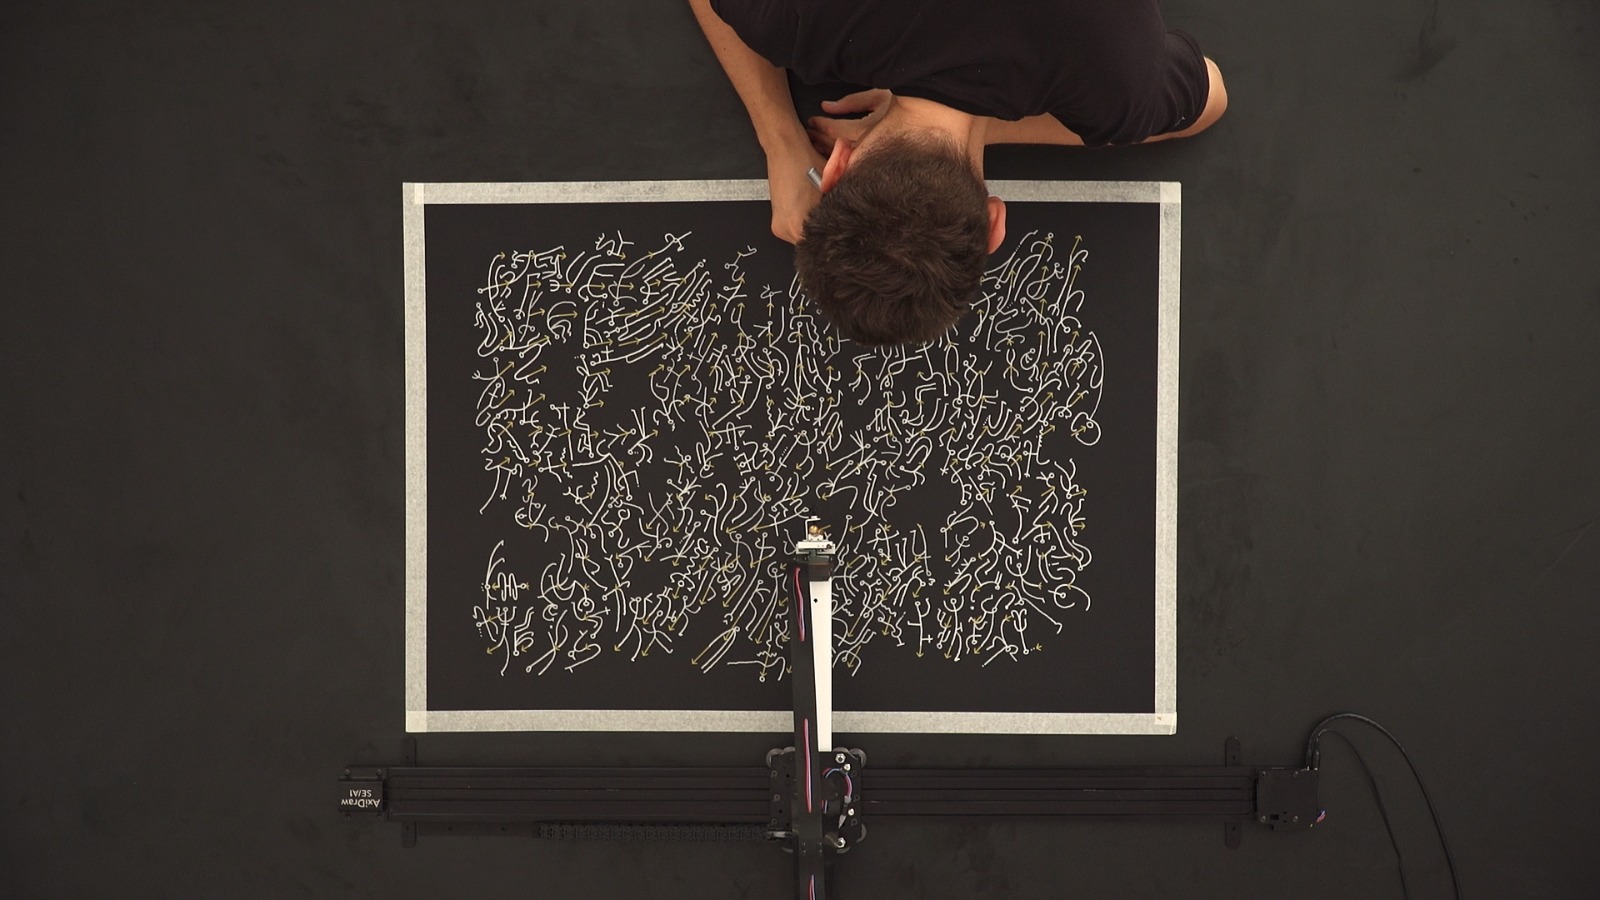 AxiDraw
SE/A1